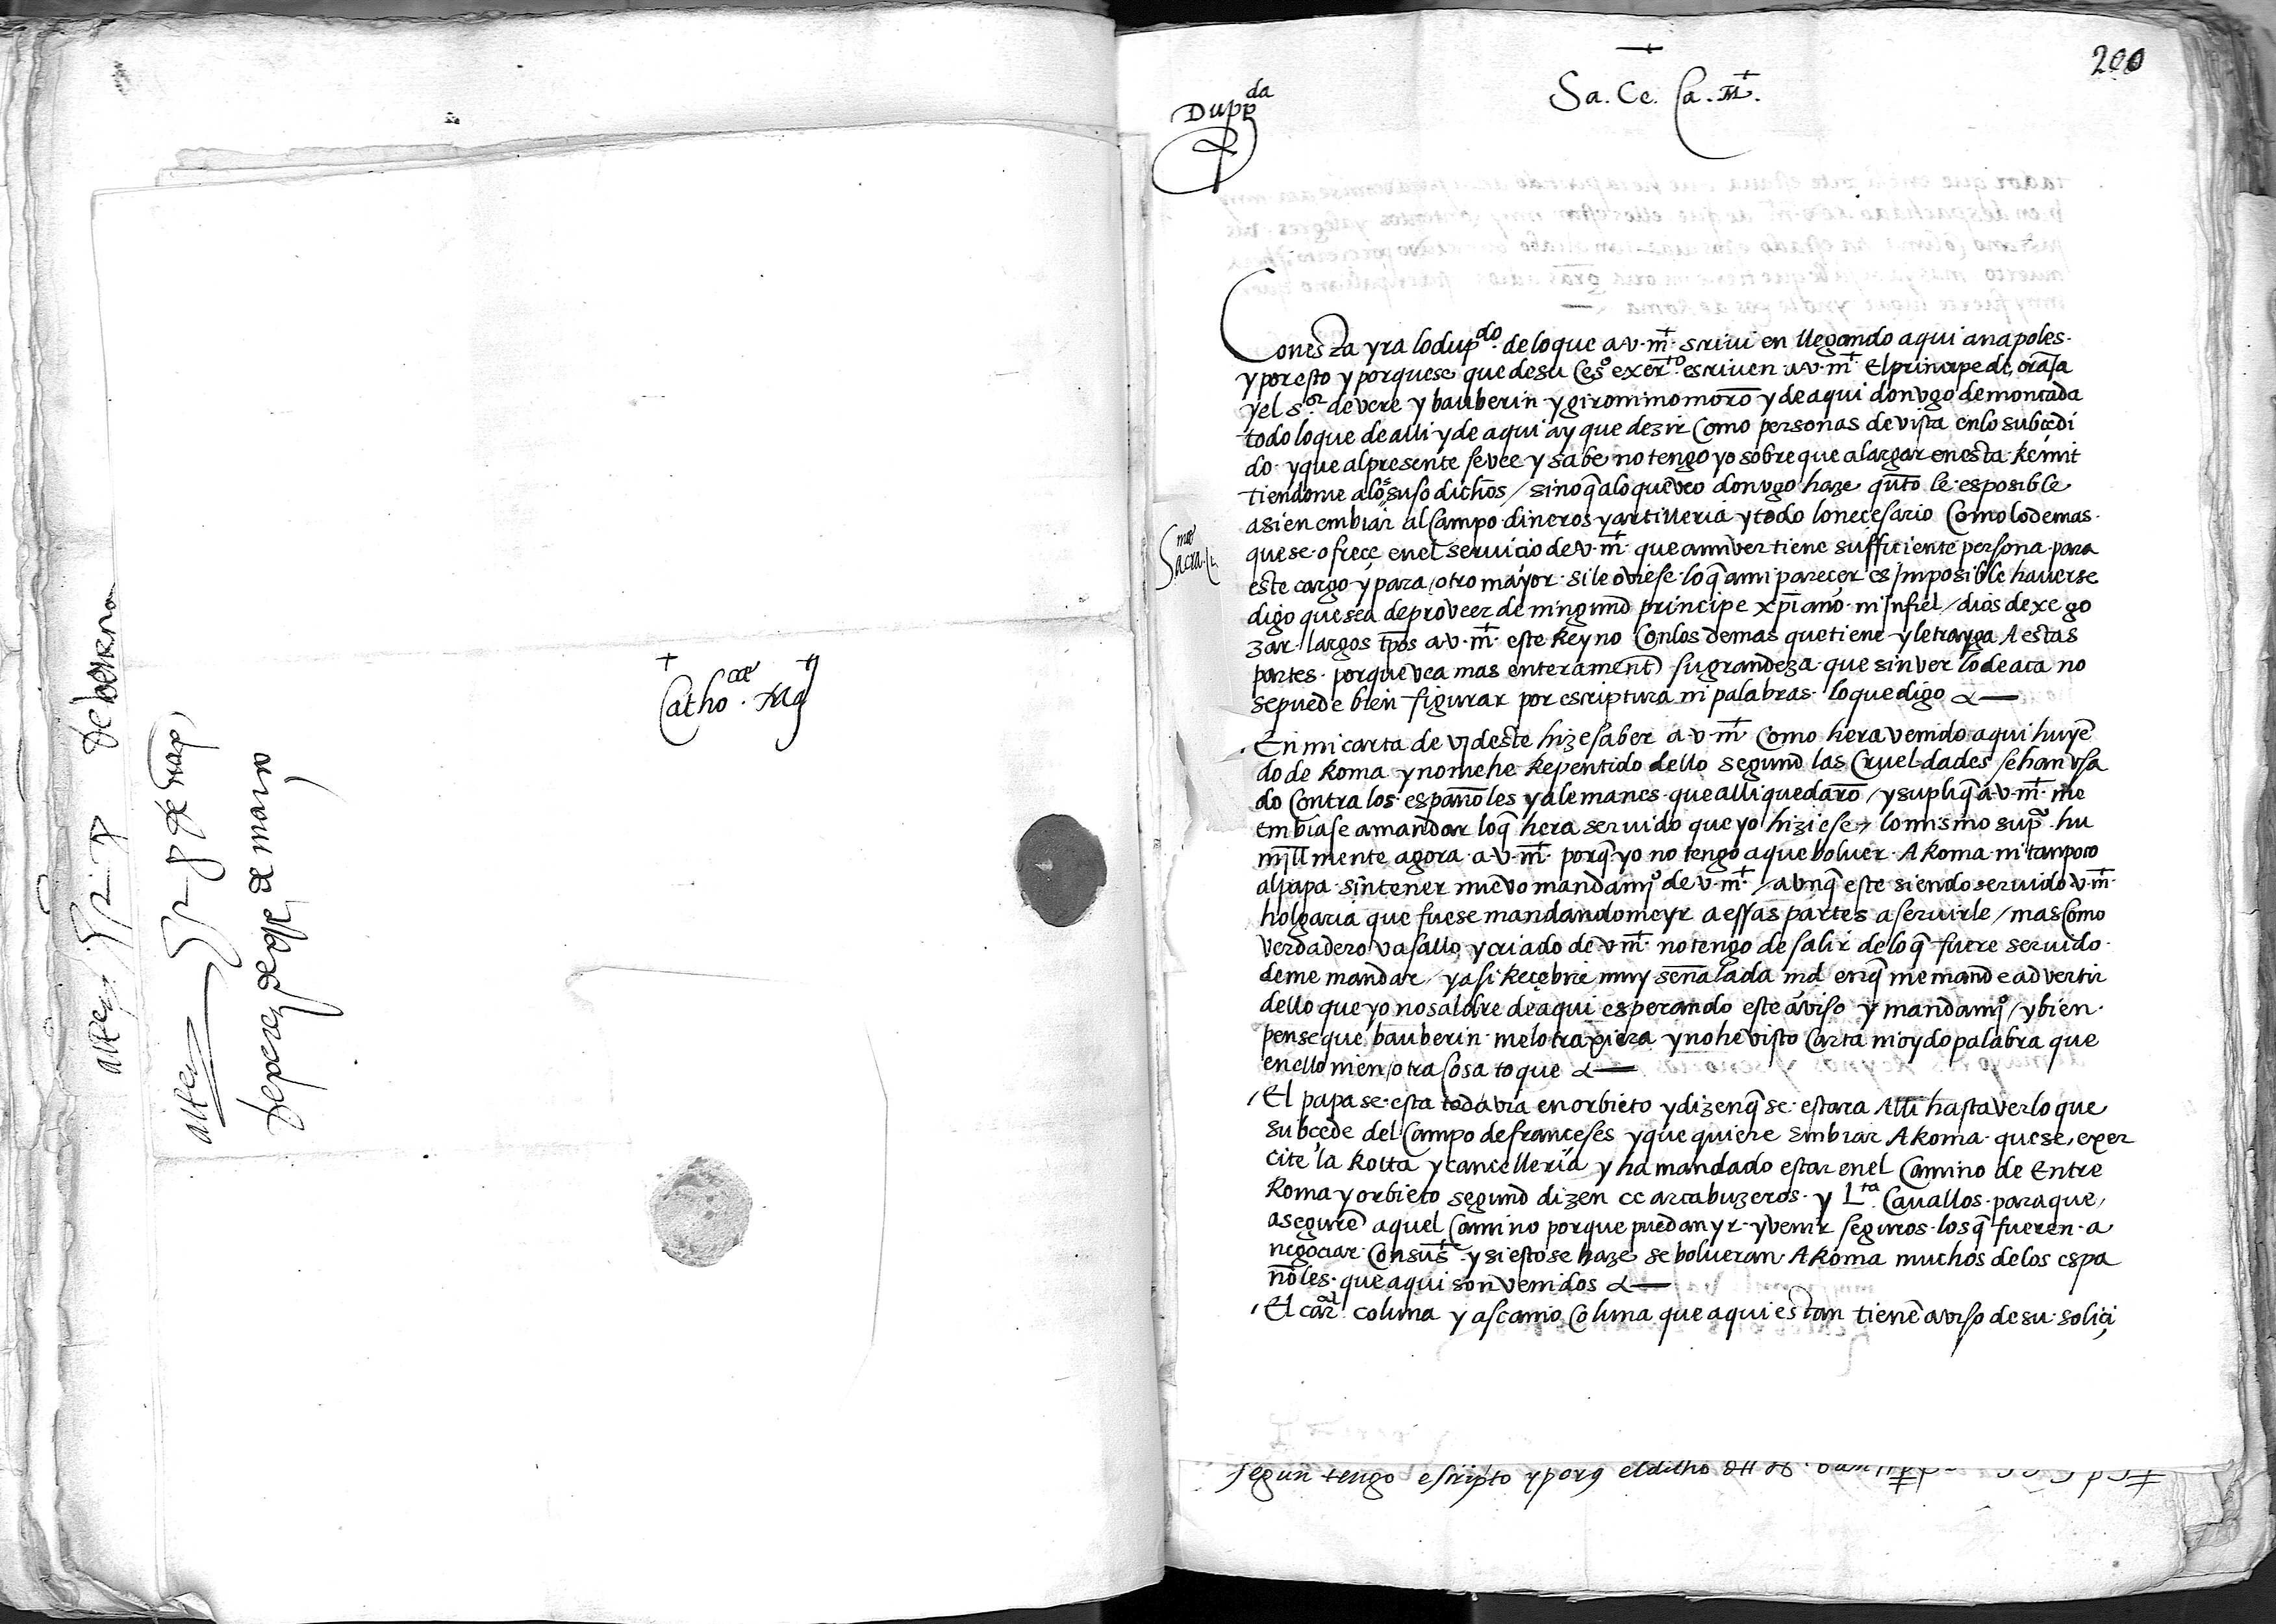 Catho.ca Mag
de perez
de março
200
Sa. Ce. Ca. M.
Dupda
Con esta yra lo dupdo. de lo que a v. m. scriui en llegando aqui a napoles.
y por esto y porque se que de su Ceso exerto. escriuen a v. m. El principe de oraja
y el s.or de vere y bauberin y girominomoro y de aqui don vgo de moncada
todo lo que de alli y de aqui ay que dezir Como personas de vista en lo subcedi
do. y que al presente se vee y sabe no tengo yo sobre que alargar en esta Remit
tiendome a los suso dichos / sino q̃ a lo que veo don vgo haze quto le es posible
asi en embiar al Campo dineros y artilleria y todo lo necesario Como lo demas.
que se ofreçe en el seruicio de v. m. que a mi ver tiene sufficiente persona para
Sacra.
este cargo y para otro mayor si le oviese lo q̃ a mi pareçer es Imposible hauerse
digo que sea de proveer de ningund principe xp̃iano ni Infiel / dios dexe go
zar largos tp̃os a v. m. este Reyno Con los demas que tiene y le trayga A estas
partes. porque vea mas enterament su grandeza que sin ver lo de aca no
se puede bien figurar por escriptura ni palabras lo que digo &—
En mi carta de vj deste hize saber a v. m. Como hera venido aqui huyẽ
do de Roma y no me he Repentido dello segund las Crueldades se han vsa
do Contra los españoles y alemanes que alli quedarõ / y supliq̃ a v. m. me
embiase a mandar lo q̃ hera seruido que yo hiziese / lo mismo sup.co hu
millmente agora a v. m. porq̃ yo no tengo a que boluer A Roma ni tanpoco
al papa sin tener nuevo mandamj.o de v. m. / avnq̃ este siendo seruido v. m.
holgaria que fuese mandandome yr a essas partes a seruirle / mas Como
verdadero vasallo y criado de v. m. no tengo de salir de lo q̃ fuere seruido.
de me mandar / y asi Reçebire muy señalada md en q̃ me mande advertir
dello que yo no saldre de aqui esperando este aviso y mandamj.o / y bien.
pense que bauberin me lo traxiera y no he visto Carta ni oydo palabra que
en ello ni en otra Cosa toque &—
/ El papa se esta todavia en orbieto y dizen q̃ se estara Alli hasta ver lo que
subçede del Campo de franceses y que quiere Embiar A Roma que se exer
cite la Rotta y cancelleria y ha mandado estar en el Camino de Entre
Roma y orbieto segund dizen cc arcabuzeros y L.ta Cauallos para que
asegurẽ aquel Camino porque puedan yr y venir seguros los q̃ fueren a
negociar Con su s.t y si esto se haze se bolueran A Roma muchos de los espa
ñoles que aqui son venidos &—
/ El carl. coluna y ascanio Coluna que aqui estan tienẽ aviso de su soliçi
segun tengo escripto y porq el dicho